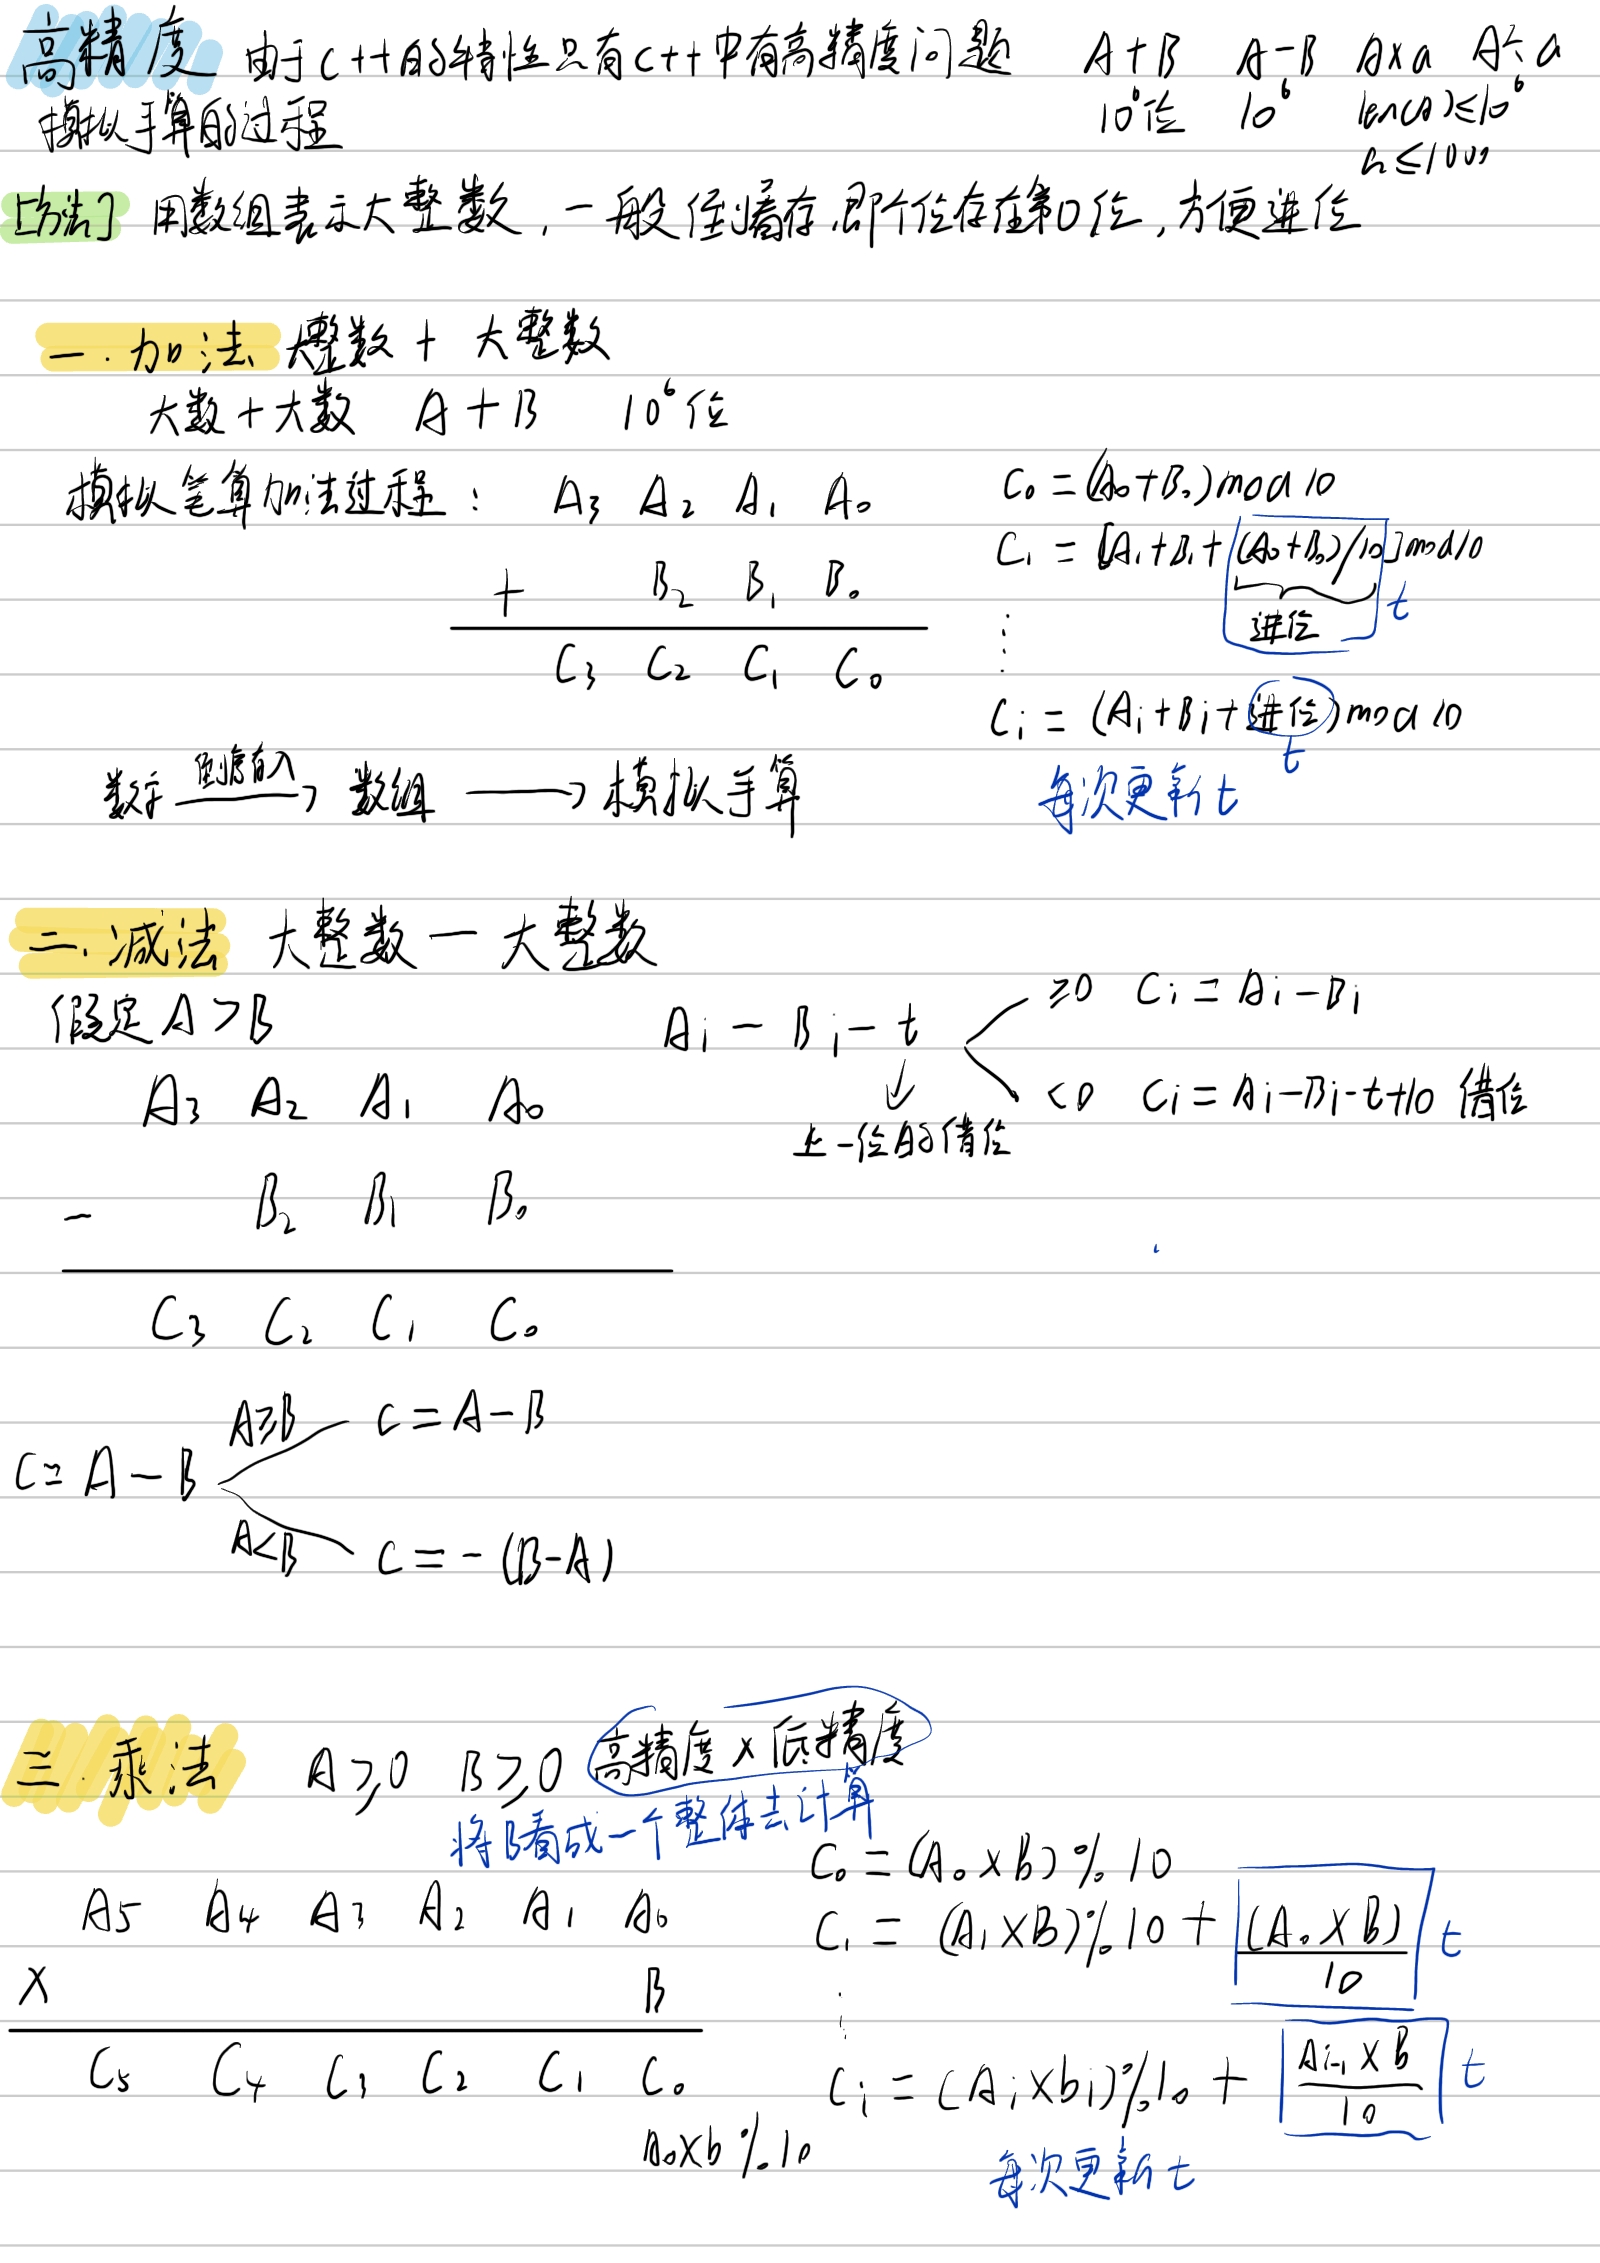 高精度 由于C++的特性只有C++中有高精度问题 A+B A-B A×a A÷a
模拟手算的过程 10⁶位 10⁶ len(A)≤10⁶
a≤1000
[方法] 用数组表示大整数，一般倒着存，即个位存在第0位，方便进位
一.加法 大整数 + 大整数
大数+大数 A+B 10⁶位
模拟笔算加法过程： A₃ A₂ A₁ A₀
+ B₂ B₁ B₀
C₃ C₂ C₁ C₀
C₀ = (A₀+B₀) mod 10
C₁ = [A₁+B₁+(A₀+B₀)/10] mod 10
进位 t
⋮
Cᵢ = (Aᵢ+Bᵢ+进位) mod 10
t
每次更新t
数字 → 数组 → 模拟手算
二.减法 大整数 — 大整数
假定A>B
A₃ A₂ A₁ A₀
- B₂ B₁ B₀
C₃ C₂ C₁ C₀
Aᵢ - Bᵢ - t
≥0 Cᵢ = Aᵢ-Bᵢ
<0 Cᵢ = Aᵢ-Bᵢ-t+10 借位
上一位的借位
C = A-B
A≥B C = A-B
A<B C = -(B-A)
三.乘法 A≥0 B≥0 高精度×低精度
将B看成一个整体去计算
A₅ A₄ A₃ A₂ A₁ A₀
× B
C₅ C₄ C₃ C₂ C₁ C₀
A₀×b%10
C₀ = (A₀×B)%10
C₁ = (A₁×B)%10 + (A₀×B)/10 t
⋮
Cᵢ = (Aᵢ×bᵢ)%10 + Aᵢ₋₁×B/10 t
每次更新t